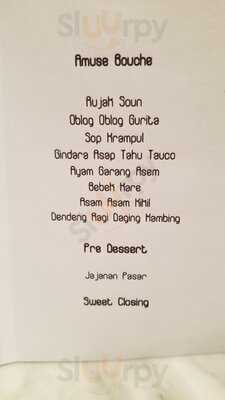 Sluurpy
Amuse Bouche
Rujak Soun
Oblog Oblog Gurita
Sop Krampul
Gindara Asap Tahu Tauco
Ayam Garang Asem
Bebek Kare
Asam Asam Kikil
Dendeng Ragi Daging Kambing
Pre Dessert
Jajanan Pasar
Sweet Closing
Sluurpy